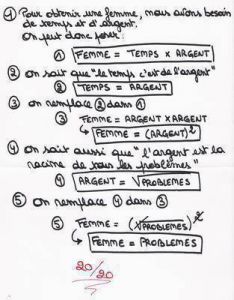 ① Pour obtenir une femme, nous avons besoin
de temps et d'argent.
On peut donc poser :
① FEMME = TEMPS × ARGENT
② On sait que "le temps c'est de l'argent"
② TEMPS = ARGENT
③ on remplace ② dans ①
③ FEMME = ARGENT × ARGENT
↳ FEMME = (ARGENT)²
④ On sait aussi que "l'argent est la
racine de tous les problèmes"
④ ARGENT = √PROBLEMES
⑤ on remplace ④ dans ③
⑤ FEMME = (√PROBLEMES)²
↳ FEMME = PROBLEMES
20/20